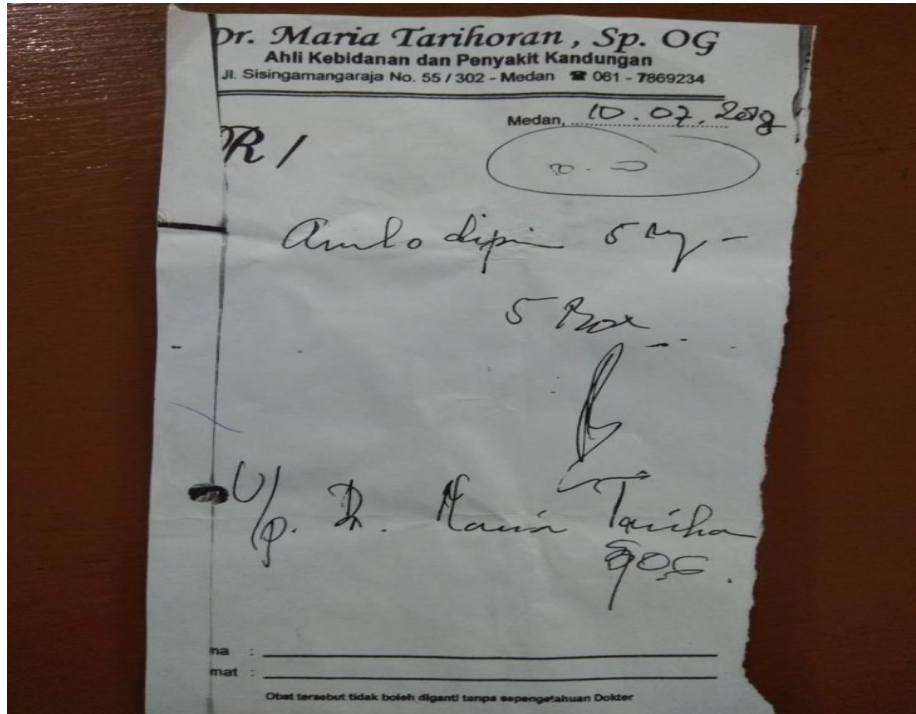 Dr. Maria Tarihoran, Sp. OG
Ahli Kebidanan dan Penyakit Kandungan
Jl. Sisingamangaraja No. 55 / 302 - Medan ☎ 061 - 7869234
Medan, 10. 07. 2018
R /
Amlodipin 5 mg -
5 Box
U/p. Dr. Maria Tariho
SpOG.
na :
mat :
Obat tersebut tidak boleh diganti tanpa sepengetahuan Dokter